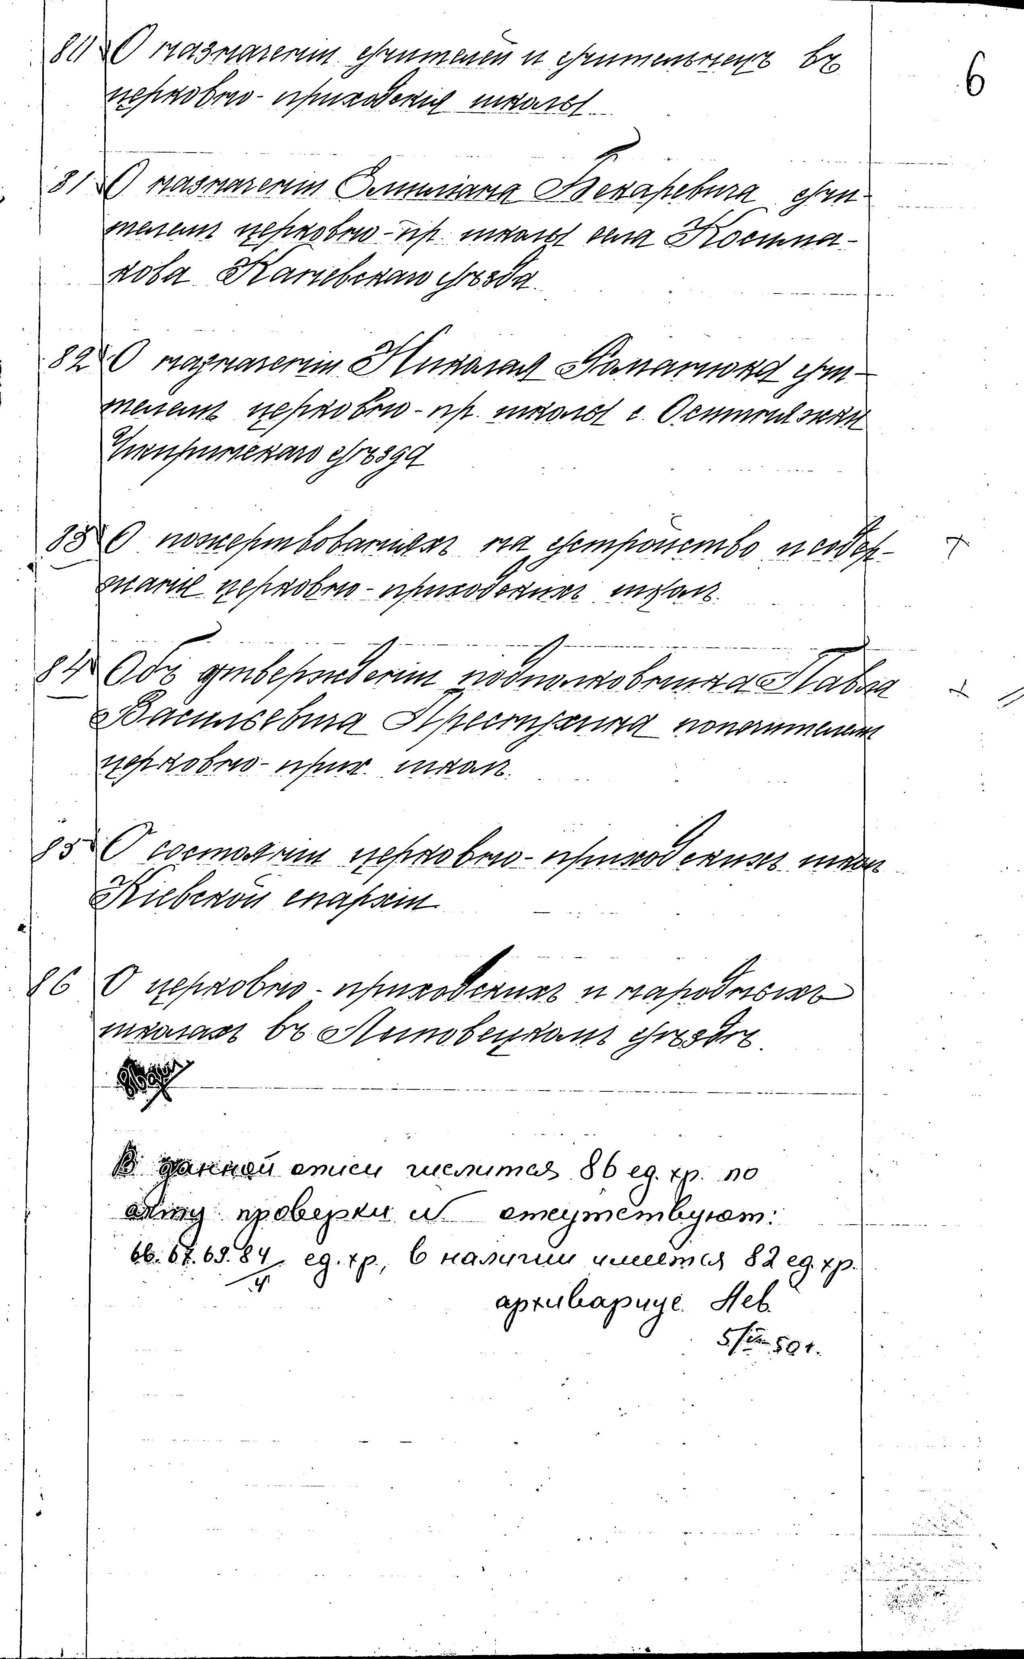 6
80 О назначеніи учителей и учительницъ въ
церковно-приходскія школы
81 О назначеніи Емиліана Бекаревича учи-
телемъ церковно-пр. школы села Косьмa-
кова Каневскаго уѣзда
82 О назначеніи Николая Романюка учи-
телемъ церковно-пр. школы с. Оситняжки
Чигиринскаго уѣзда
83 О пожертвованіяхъ на устройство и содер-
жаніе церковно-приходскихъ школъ
84 Объ утвержденіи подполковника Павла
Васильевича попечителемъ
церковно-прих. школъ
85 О состояніи церковно-приходскихъ школъ
Кіевской епархіи
86 О церковно-приходскихъ и народныхъ
школахъ въ Липовецкомъ уѣздѣ.
В данной описи числится 86 ед. хр. по
акту проверки и отсутствуют:
66. 67. 69. 84 ед. хр., в наличии имеется 82 ед. хр.
4
архивариус